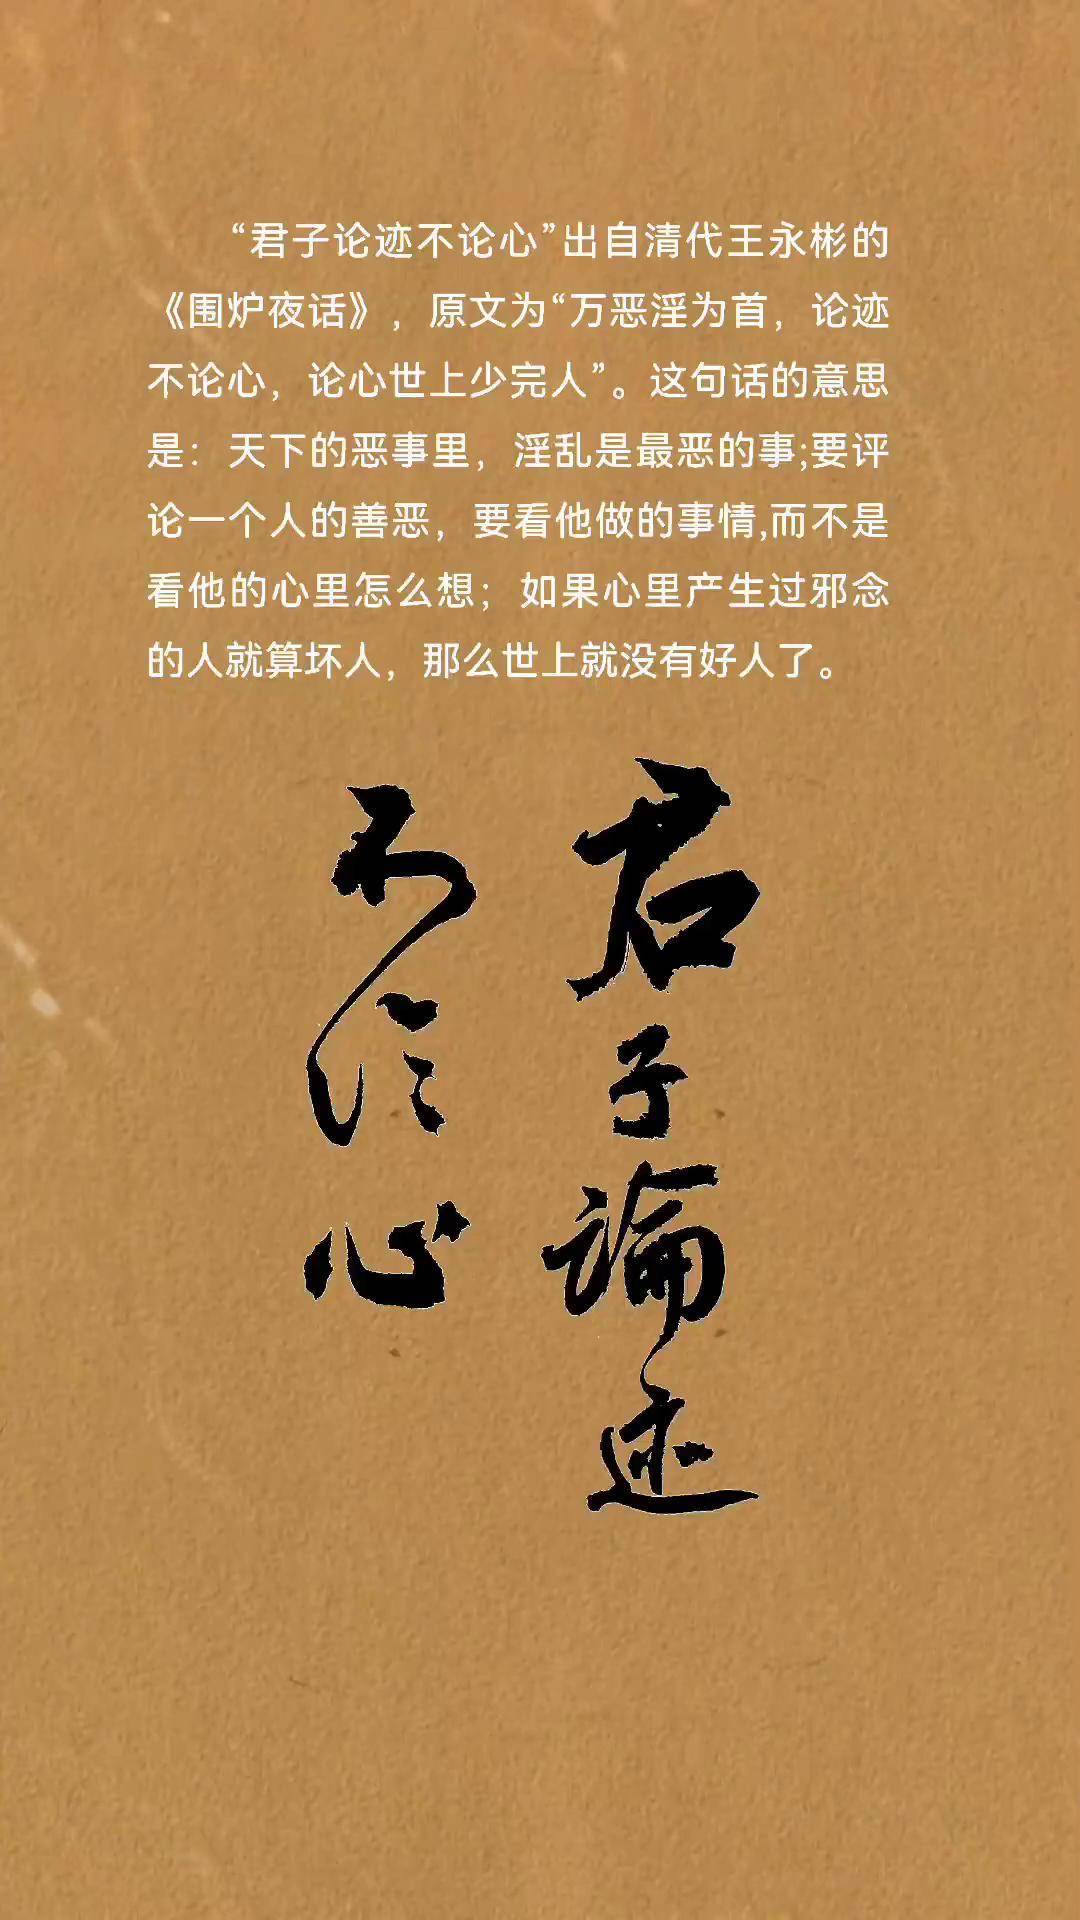 “君子论迹不论心”出自清代王永彬的
《围炉夜话》，原文为“万恶淫为首，论迹
不论心，论心世上少完人”。这句话的意思
是：天下的恶事里，淫乱是最恶的事;要评
论一个人的善恶，要看他做的事情,而不是
看他的心里怎么想；如果心里产生过邪念
的人就算坏人，那么世上就没有好人了。
君子論迹
不论心